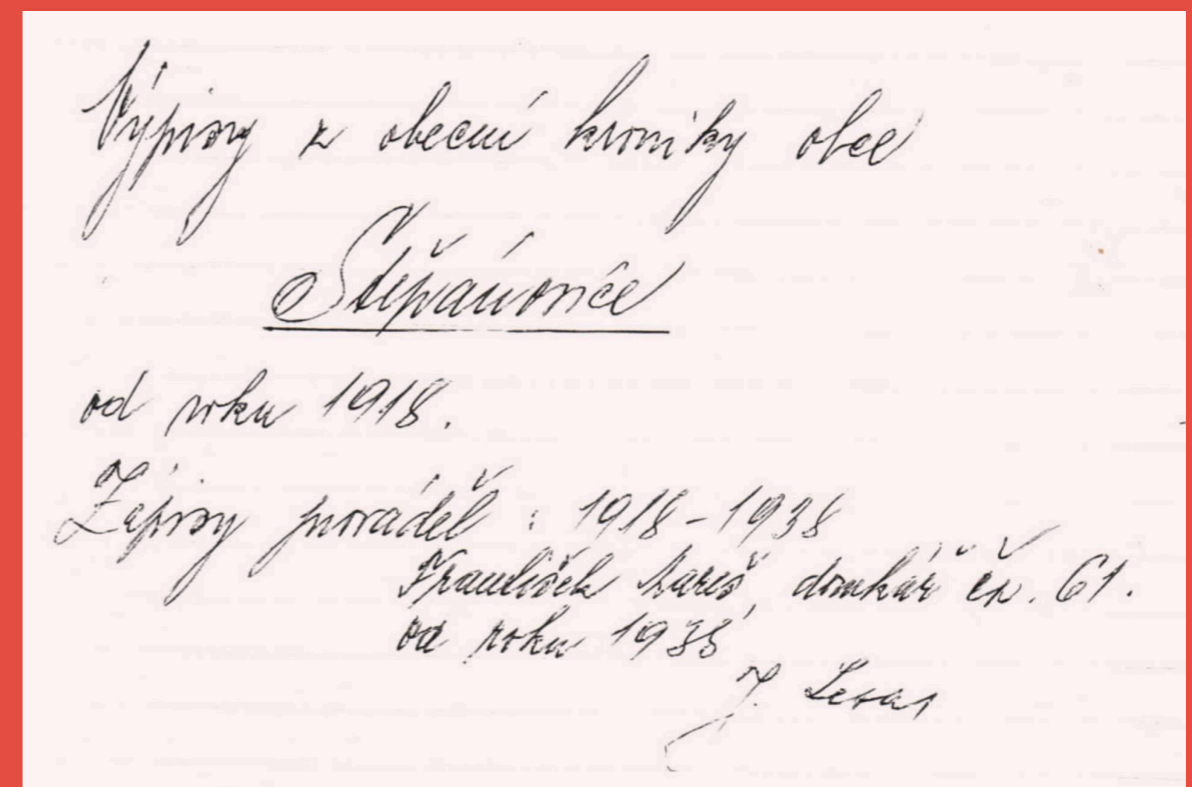 Výpisy z obecní kroniky obce
Štěpánovice
od roku 1918.
Zápisy prováděl : 1918-1938
František Mareš, domkář čp. 61.
od roku 1938
J.